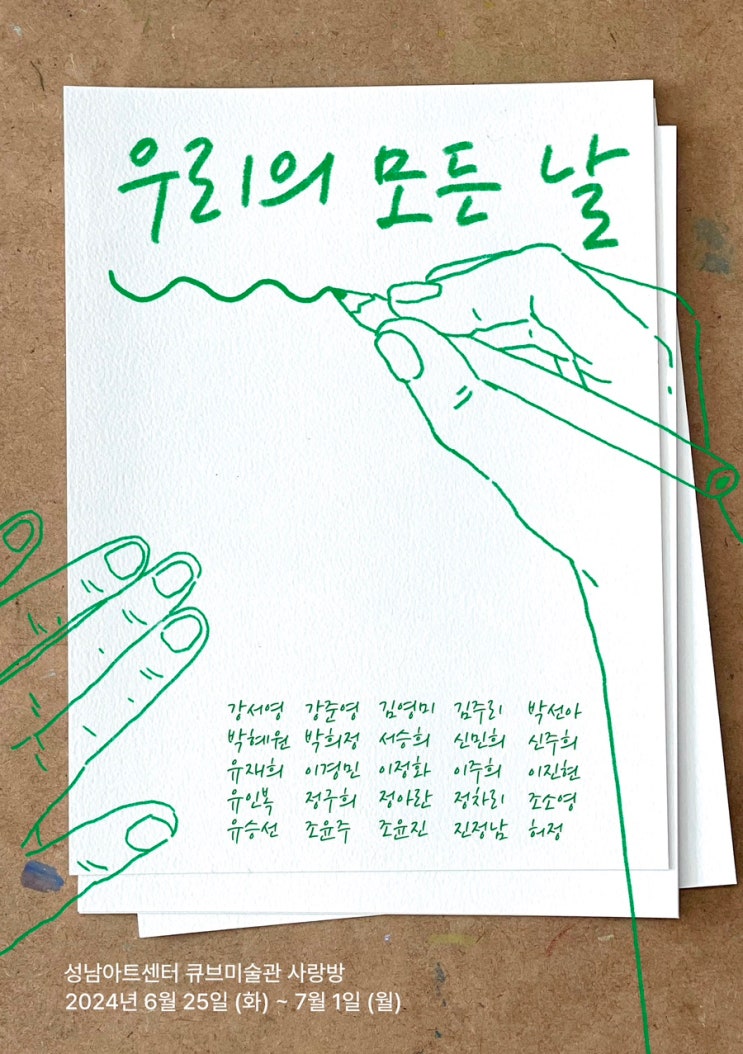 우리의 모든 날
강서영 강준영 김영미 김주리 박선아
박혜원 박희정 서승희 신민희 신주희
유재희 이경민 이정화 이주희 이진현
유인복 정구희 정아란 정차리 조소영
유승선 조윤주 조윤진 진정남 허정
성남아트센터 큐브미술관 사랑방
2024년 6월 25일 (화) ~ 7월 1일 (월)